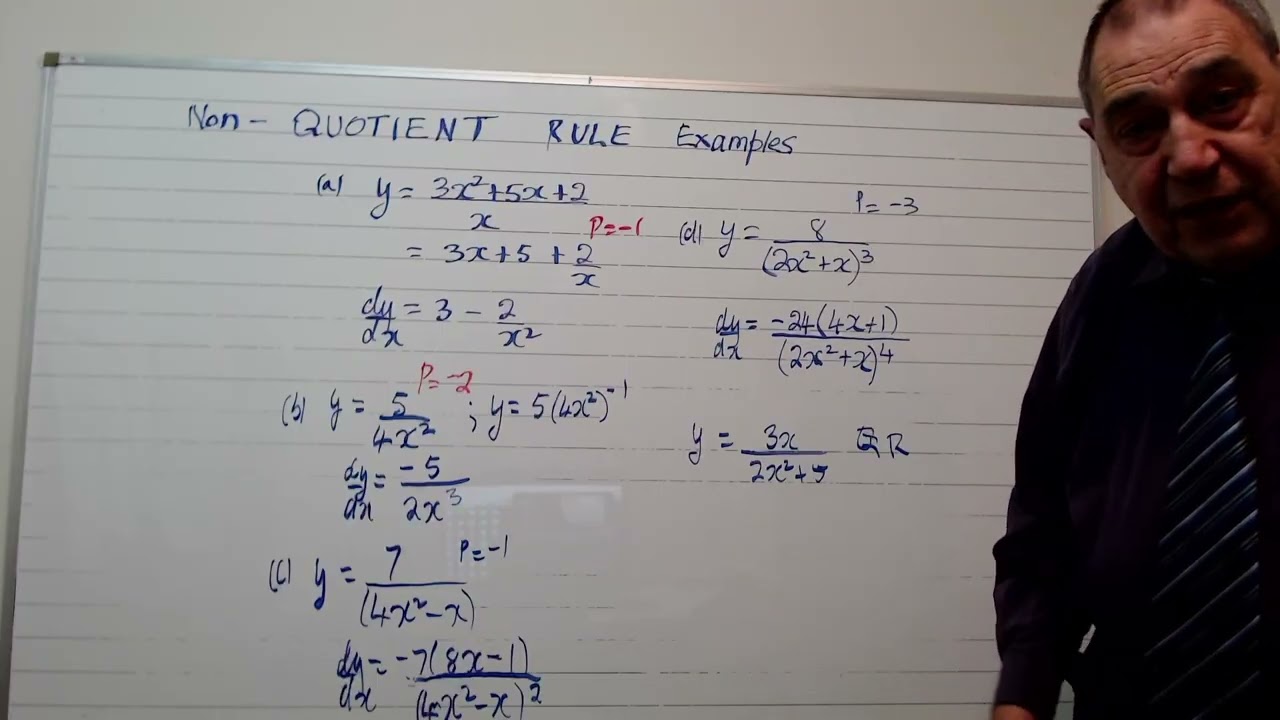 Non- QUOTIENT RULE Examples
(a) y = 3x²+5x+2 / x
P=-1
= 3x+5 + 2/x
dy/dx = 3 - 2/x²
P=-2
(b) y = 5/4x² ; y = 5(4x²)⁻¹
dy/dx = -5/2x³
(c) y = 7/(4x²-x) P=-1
dy/dx = -7(8x-1)/(4x²-x)²
P=-3
(d) y = 8/(2x²+x)³
dy/dx = -24(4x+1)/(2x²+x)⁴
y = 3x/2x²+5 QR